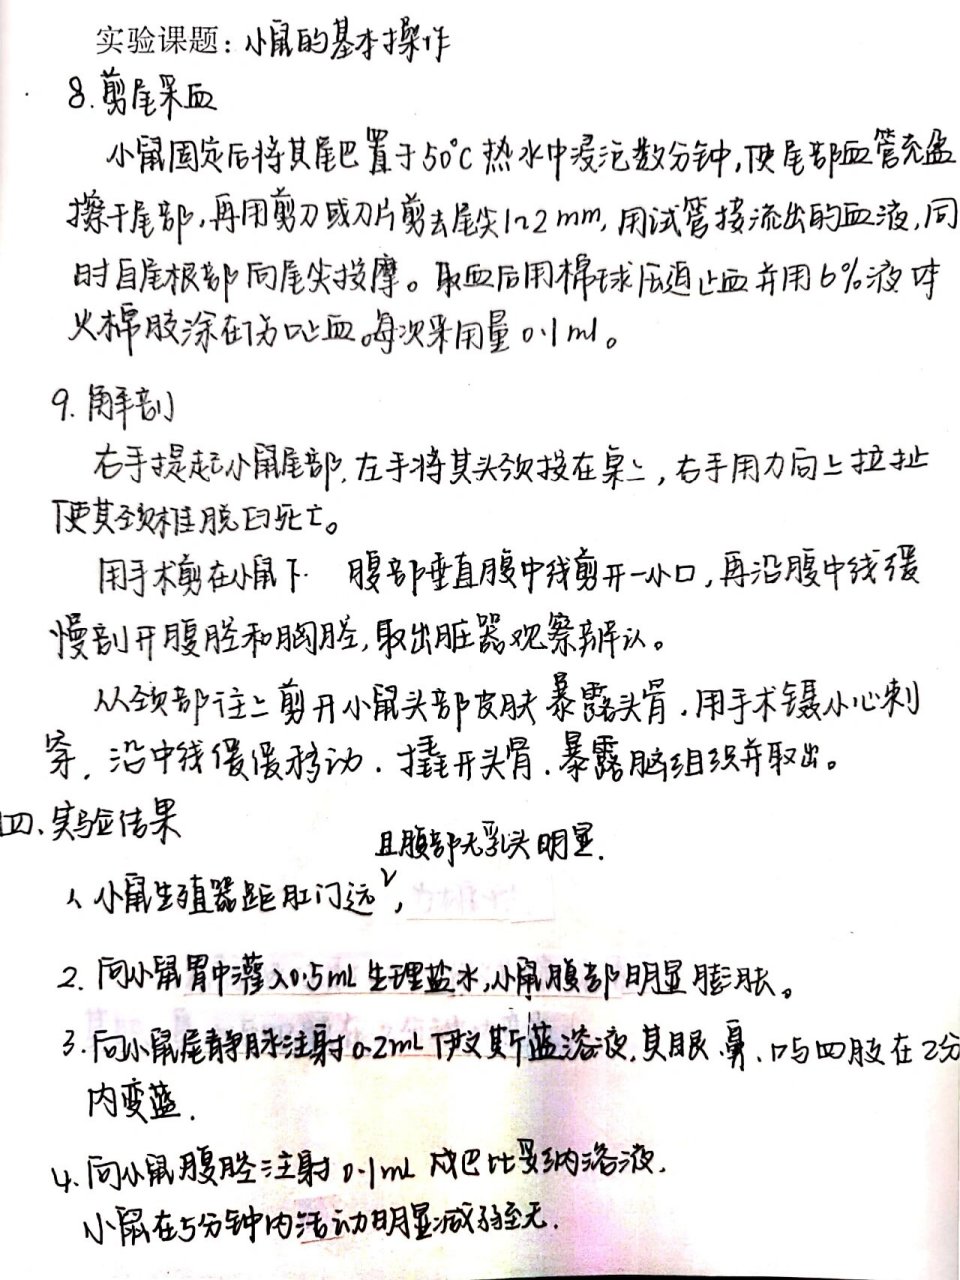 实验课题：小鼠的基本操作
8.剪尾采血
小鼠固定后将其尾巴置于50℃热水中浸泡数分钟，使尾部血管充盈
擦干尾部，再用剪刀或刀片剪去尾尖1~2mm，用试管接流出的血液，同
时自尾根部向尾尖按摩。取血后用棉球压迫止血并用6%液体
火棉胶涂在伤口止血。每次采用量0.1ml。
9.解剖
右手提起小鼠尾部，左手将其头颈按在桌上，右手用力向上拉扯
使其颈椎脱臼死亡。
用手术剪在小鼠下 腹部垂直腹中线剪开一小口，再沿腹中线缓
慢剖开腹腔和胸腔，取出脏器观察辨认。
从颈部往上剪开小鼠头部皮肤暴露头骨，用手术镊小心刺
穿，沿中线缓缓移动，撬开头骨，暴露脑组织并取出。
四、实验结果
且腹部无乳头明显.
1、小鼠生殖器距肛门远，
2.向小鼠胃中灌入0.5mL生理盐水，小鼠腹部明显膨胀。
3.向小鼠尾静脉注射0.2mL伊文斯蓝溶液，其眼、鼻、口与四肢在2分
内变蓝.
4.向小鼠腹腔注射0.1mL戊巴比妥纳溶液.
小鼠在5分钟内活动明显减弱至无.